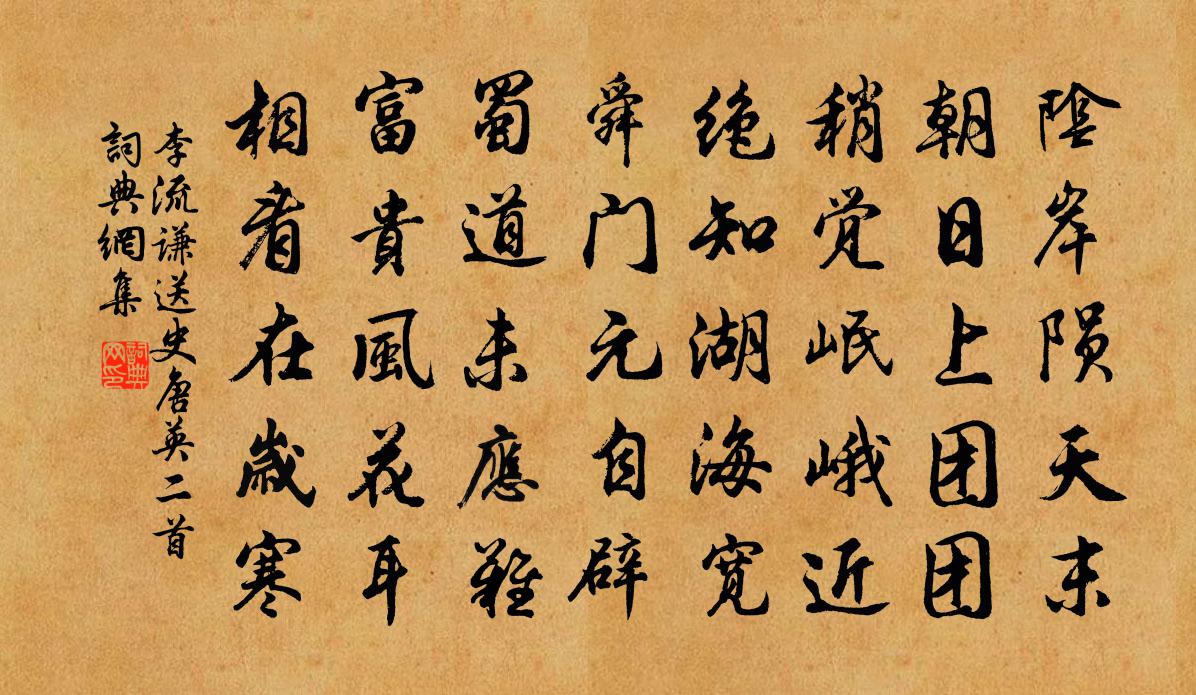 陰岸陨天未
朝日上团团
稍觉岷峨近
绝知湖海宽
舜门元自辟
蜀道未應難
富貴風花耳
相看在歲寒
李流谦送史唐英二首
詞典網集
詞典网印